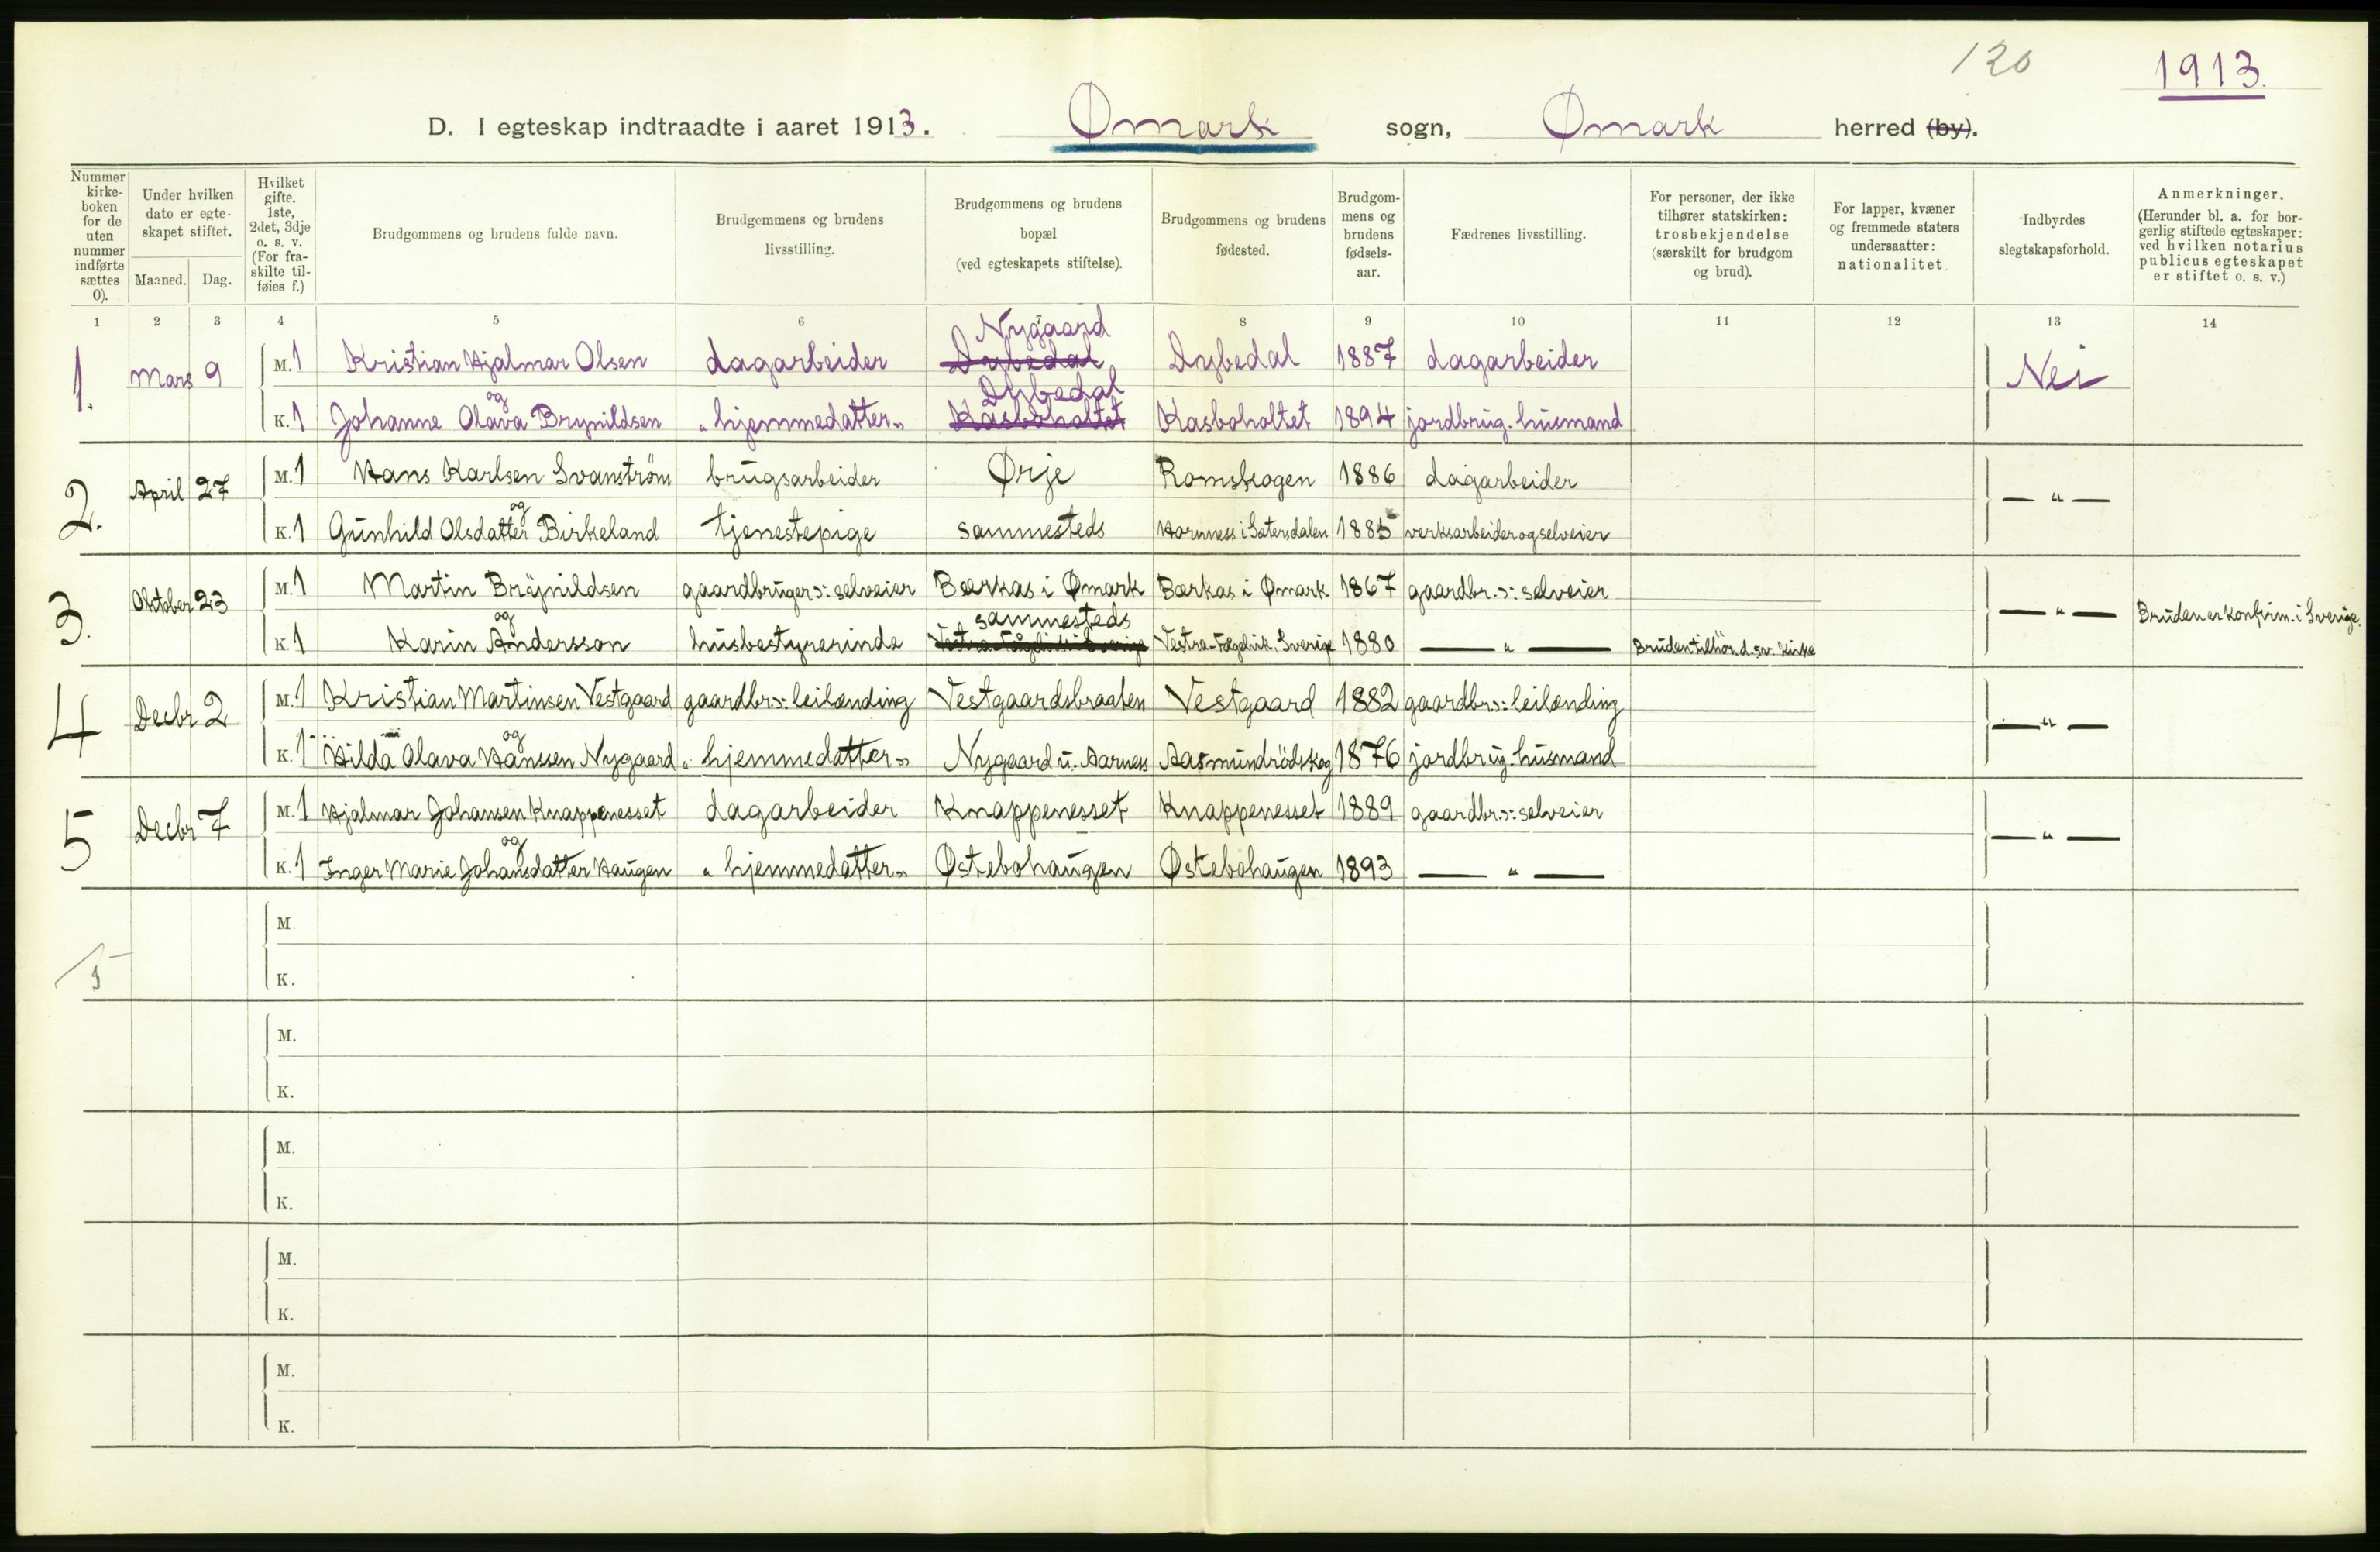 120
1913.
D. I egteskap indtraadte i aaret 1913. Ømark sogn, Ømark herred (by).
Nummer kirke-boken for de uten nummer indførte sættes 0).
Under hvilken dato er egte-skapet stiftet.
Maaned. Dag.
Hvilket gifte. 1ste, 2det, 3dje o. s. v. (For fra-skilte til-føies f.)
Brudgommens og brudens fulde navn.
Brudgommens og brudens livsstilling.
Brudgommens og brudens bopæl (ved egteskapets stiftelse).
Brudgommens og brudens fødested.
Brudgom-mens og brudens fødsels-aar.
Fædrenes livsstilling.
For personer, der ikke tilhører statskirken: trosbekjendelse (særskilt for brudgom og brud).
For lapper, kvæner og fremmede staters undersaatter: nationalitet.
Indbyrdes slegtskapsforhold.
Anmerkninger. (Herunder bl. a. for bor-gerlig stiftede egteskaper: ved hvilken notarius publicus egteskapet er stiftet o. s. v.)
1 2 3 4 5 6 7 8 9 10 11 12 13 14
1. Mars 9 M. 1 Kristian Hjalmar Olsen dagarbeider Nygaard Dybedal Dybedal 1887 dagarbeider Nei
og
K. 1 Johanne Olava Brynildsen "hjemmedatter" Dybedal Kasboholtet Kasboholtet 1894 jordbrug. husmand
2. April 27 M. 1 Hans Karlsen Svanström brugsarbeider Ørje Romskogen 1886 dagarbeider — " —
og
K. 1 Gunhild Olsdatter Birkeland tjenestepige sammesteds Hornness i Sætersdalen 1885 verksarbeider og selveier
3. Oktober 23 M. 1 Martin Bräjnildsen gaardbruger ɔ: selveier Bærkas i Ømark Bærkas i Ømark 1867 gaardbr. ɔ: selveier — " — Bruden er konfirm. i Sverige.
og
K. 1 Karin Andersson husbestyrerinde sammesteds Vestra-Fågelvik, Sverige 1880 — " — Bruden tilhör. d. sv. kirke
4 Decbr 2 M. 1 Kristian Martinsen Vestgaard gaardbr. ɔ: leilænding Vestgaardsbraaten Vestgaard 1882 gaardbr. ɔ: leilænding — " —
og
K. 1 Hilda Olava Hanssen Nygaard "hjemmedatter" Nygaard u. Aarness Aasmundrödskog 1876 jordbrug. husmand
5 Decbr 7 M. 1 Hjalmar Johansen Knappenesset dagarbeider Knappenesset Knappenesset 1889 gaardbr. ɔ: selveier — " —
og
K. 1 Inger Marie Johansdatter Haugen "hjemmedatter" Østebohaugen Østebohaugen 1893 — " —
M.
5
K.
M.
K.
M.
K.
M.
K.
M.
K.